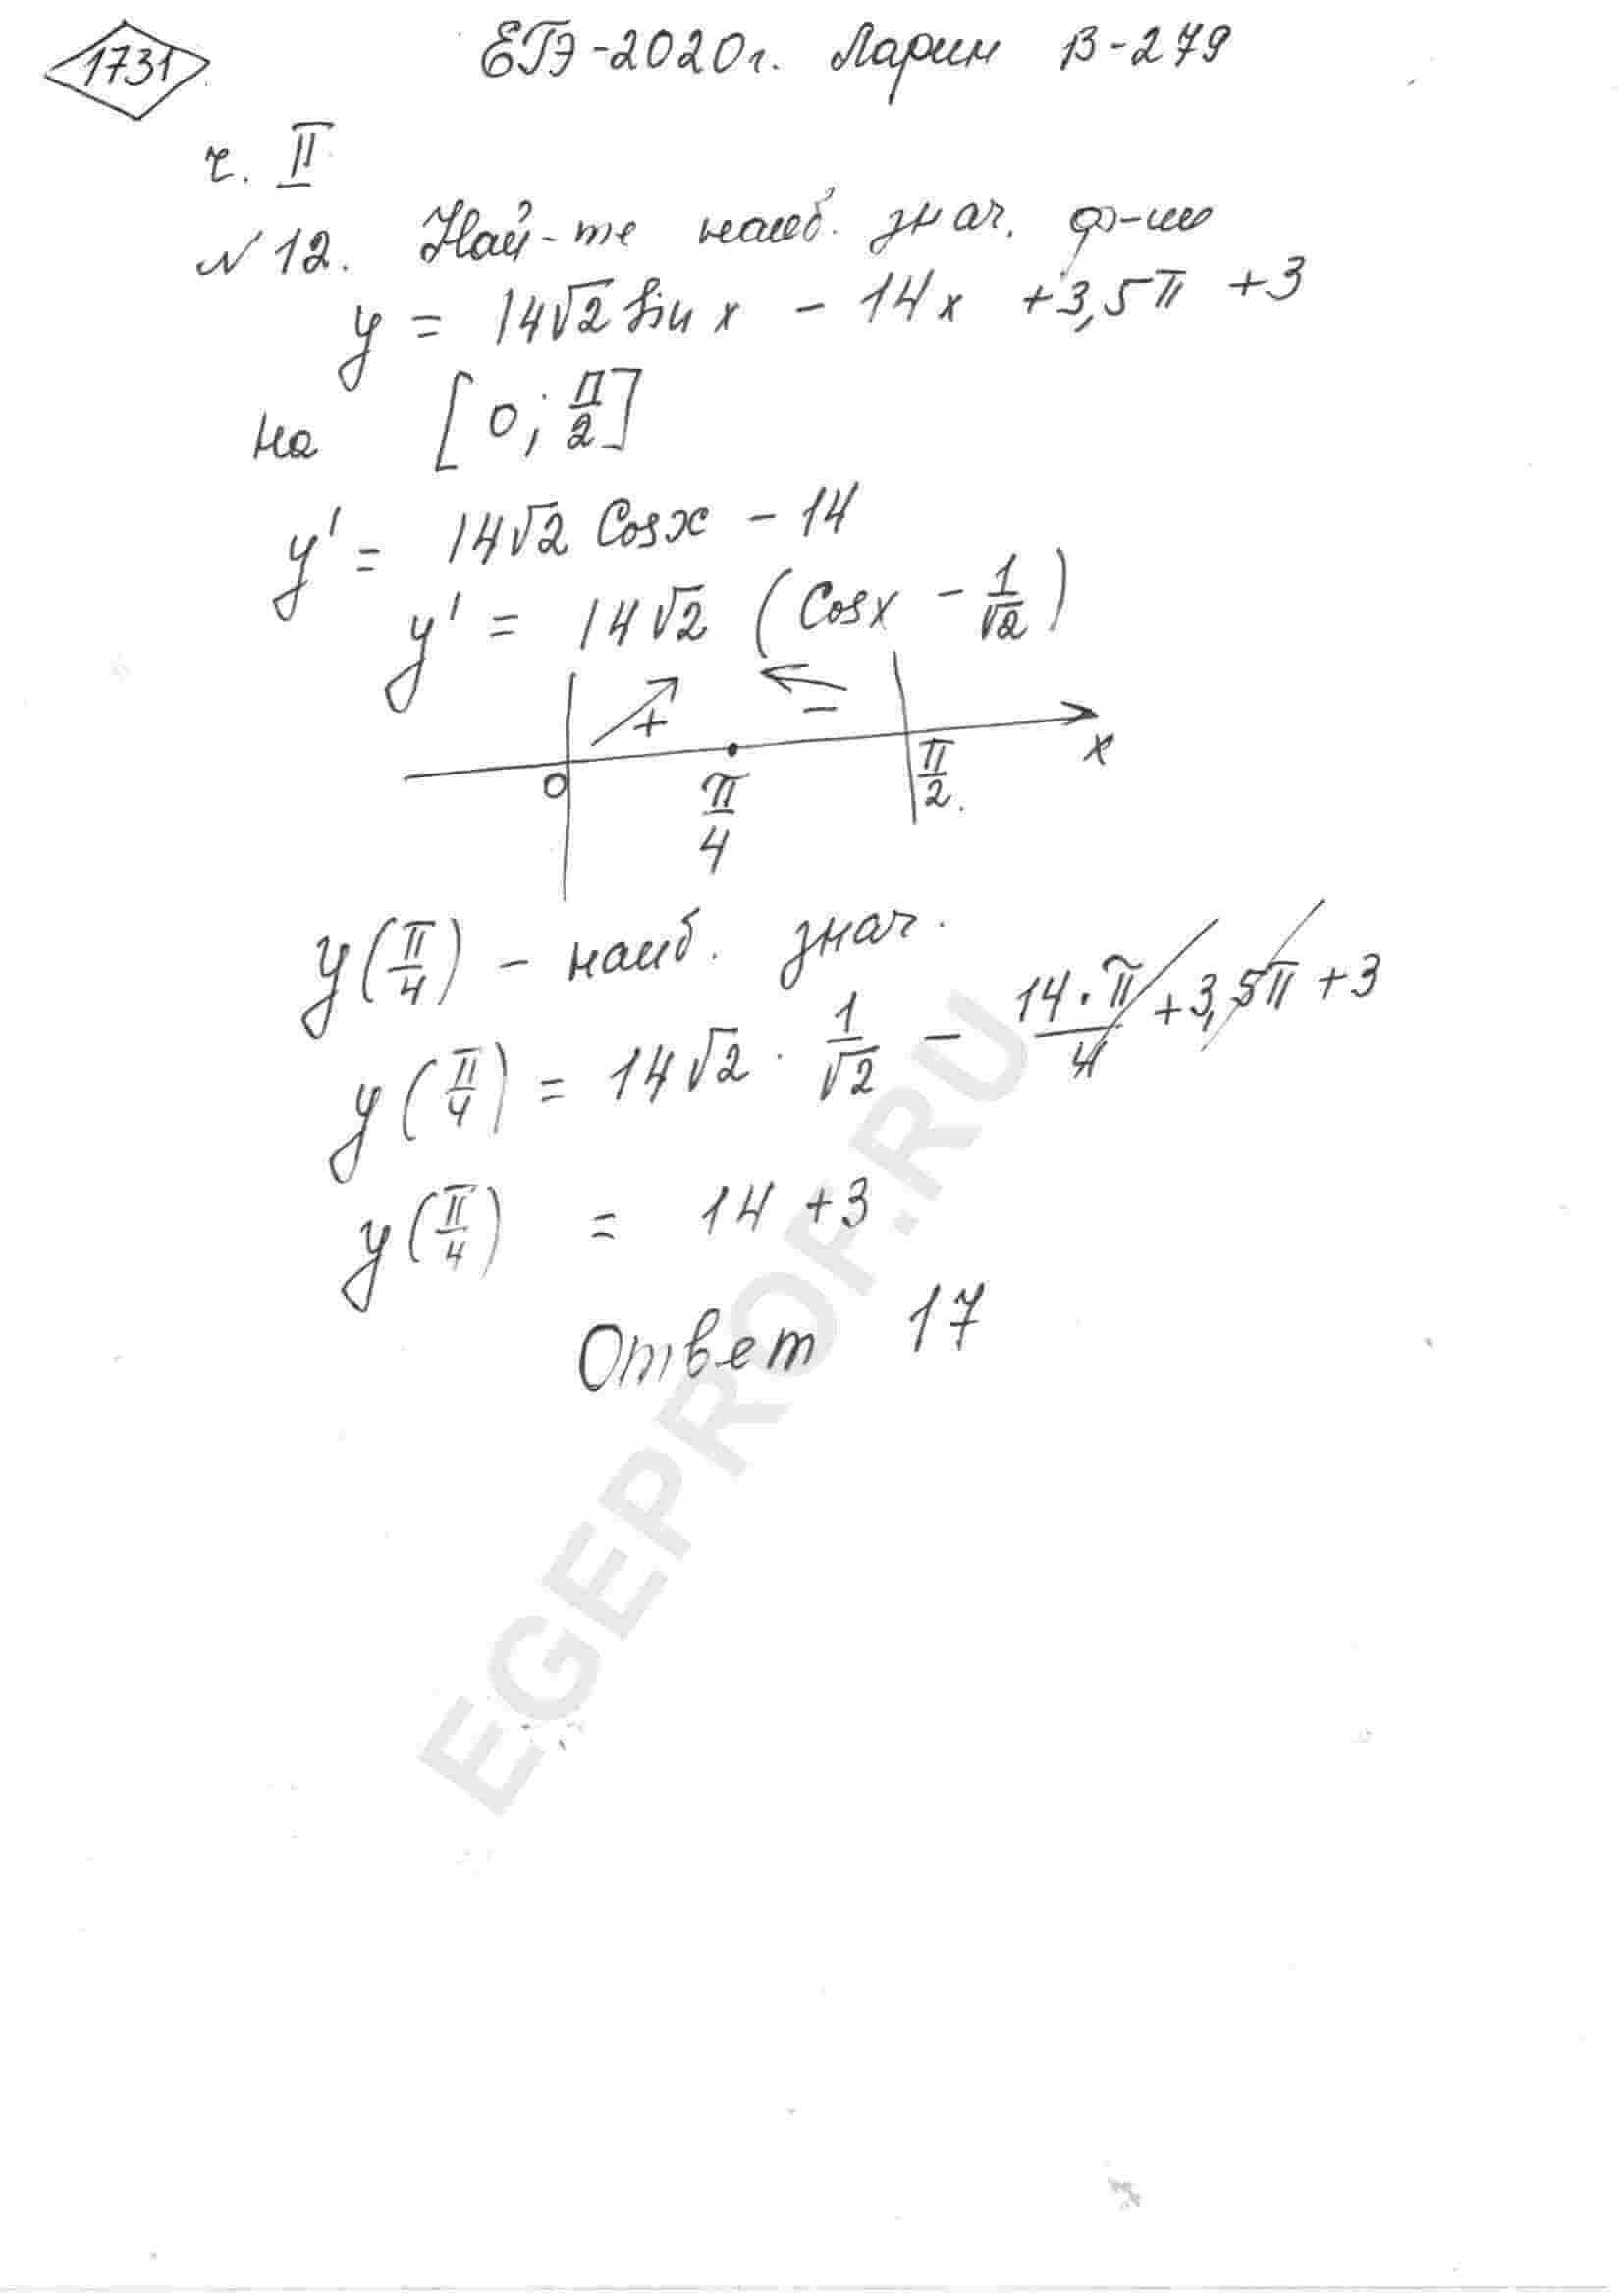 1731
ЕГЭ-2020г. Ларин В-279
ч. II
№12. Най-те наиб. знач. ф-ии
y = 14√2 sin x - 14x + 3,5π + 3
на [0; π/2]
y' = 14√2 Cosx - 14
y' = 14√2 (Cosx - 1/√2)
+ -
0 π/4 π/2 x
y(π/4) - наиб. знач.
y(π/4) = 14√2 · 1/√2 - 14·π/4 + 3,5π + 3
y(π/4) = 14 + 3
Ответ 17
EGEPROF.RU